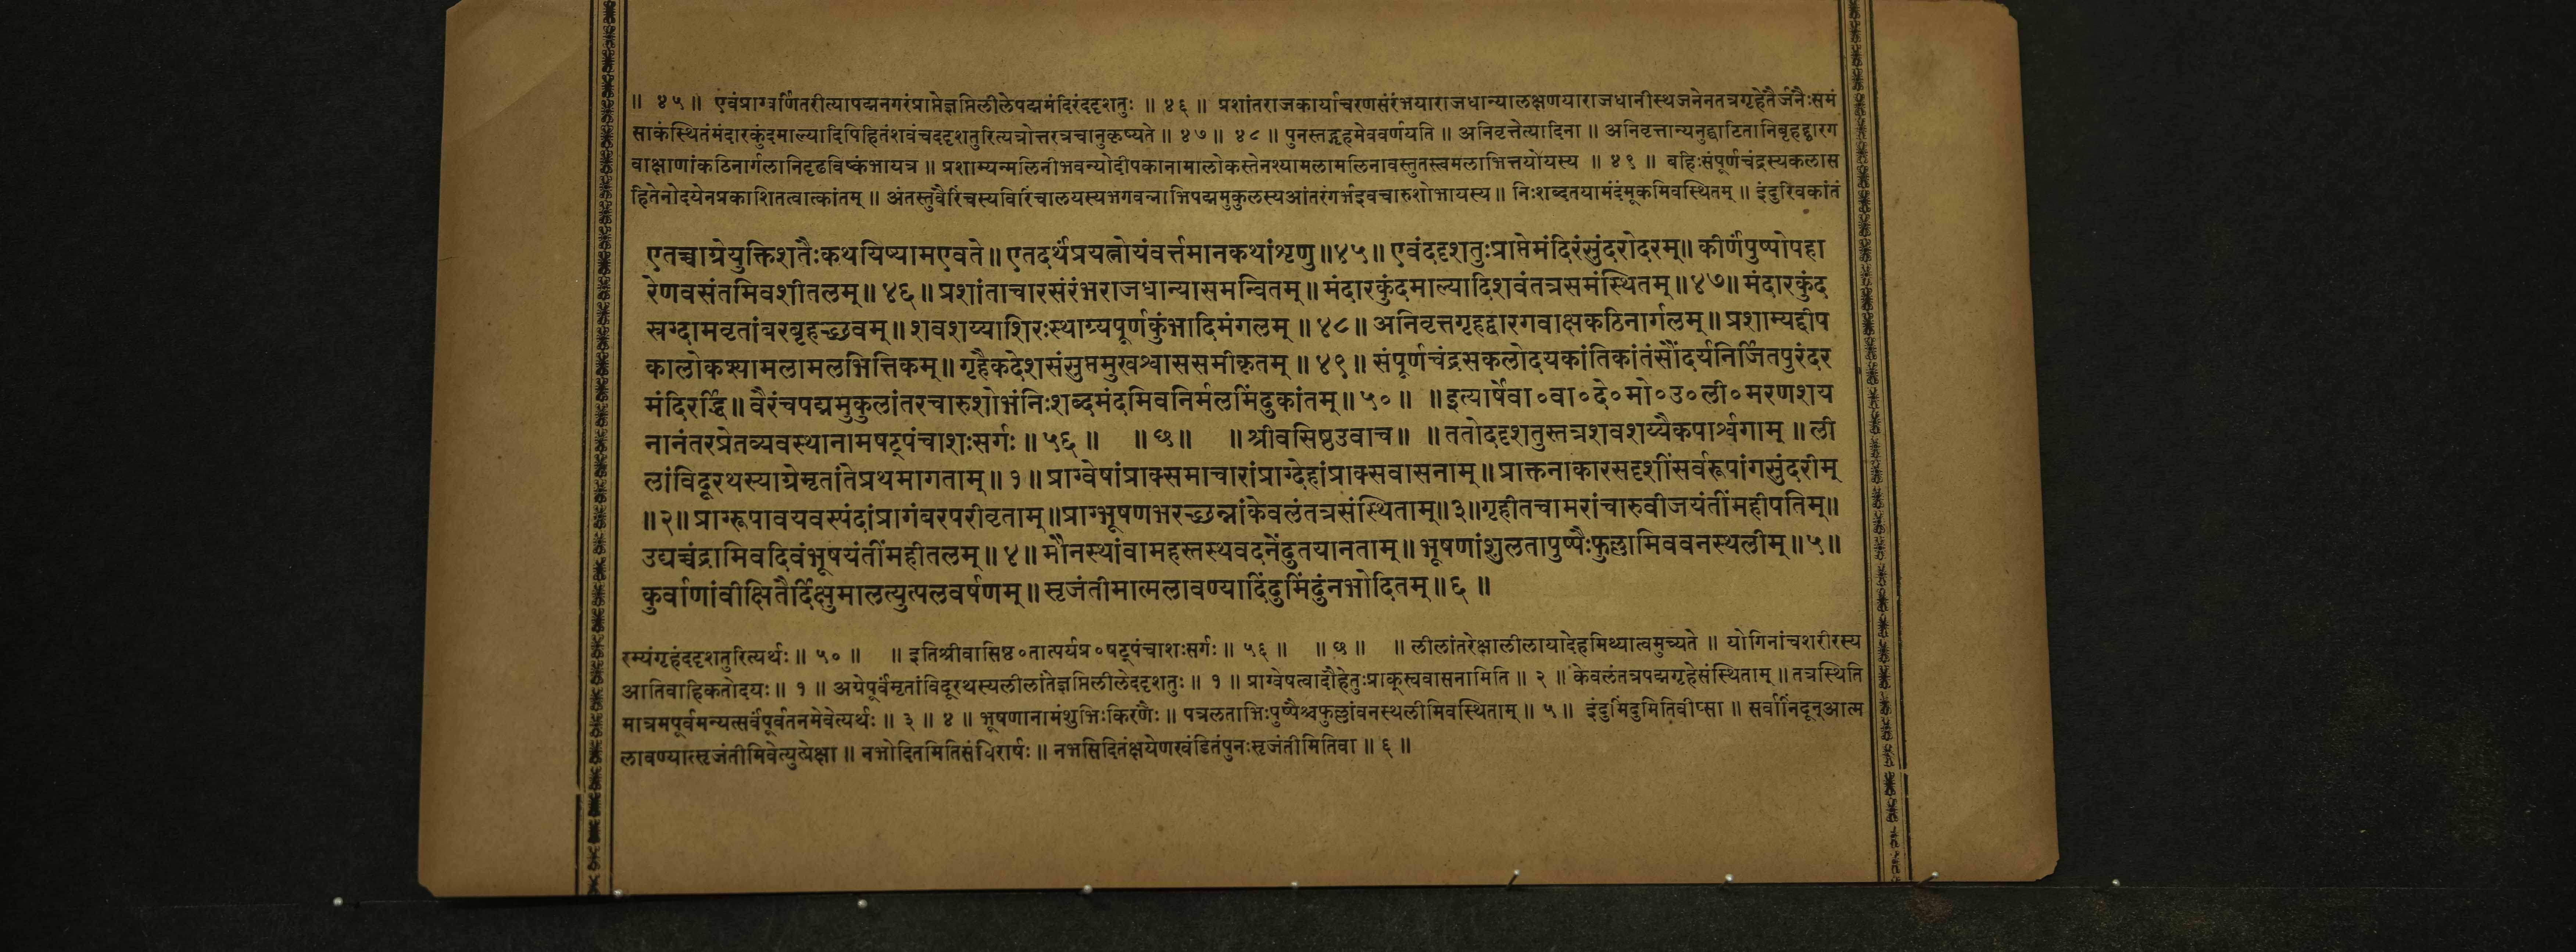 ॥ ४५ ॥ एवंप्राग्वर्णितरीत्यापद्मनगरंप्राप्तेज्ञप्तिलीलेपद्ममंदिरंददृशतुः ॥ ४६ ॥ प्रशांतराजकार्याचरणसंरंभयाराजधान्यालक्षणयाराजधानीस्थजनेनतत्रगृहेतैर्जनैःसमं
साकंस्थितंमंदारकुंदमाल्यादिपिहितंशवंचददृशतुरित्यत्रोत्तरत्रचानुकृष्यते ॥ ४७ ॥ ४८ ॥ पुनस्तद्गृहमेववर्णयति ॥ अनिवृत्तेत्यादिना ॥ अनिवृत्तान्यनुद्घाटितानिबृहद्द्वारग
वाक्षाणांकठिनार्गलानिदृढविष्कंभायत्र ॥ प्रशाम्यन्मलिनीभवन्योदीपकानामालोकस्तेनश्यामलामलिनावस्तुतस्त्वमलाभित्तयोयस्य ॥ ४९ ॥ बहिःसंपूर्णचंद्रस्यकलास
हितेनोदयेनप्रकाशितत्वात्कांतम् ॥ अंतस्तुवैरिंचस्यविरिंचालयस्यभगवन्नाभिपद्ममुकुलस्यआंतरंगर्भइवचारुशोभायस्य ॥ निःशब्दतयामंदंमूकमिवस्थितम् ॥ इंदुरिवकांतं
एतच्चाग्रेयुक्तिशतैःकथयिष्यामएवते ॥ एतदर्थंप्रयत्नोयंवर्त्तमानकथांशृणु ॥४५॥ एवंददृशतुःप्राप्तेमंदिरंसुंदरोदरम् ॥ कीर्णंपुष्पोपहा
रेणवसंतमिवशीतलम् ॥ ४६ ॥ प्रशांताचारसंरंभराजधान्यासमन्वितम् ॥ मंदारकुंदमाल्यादिशवंतत्रसमंस्थितम् ॥४७॥ मंदारकुंद
स्रग्दामवृतांबरबृहच्छवम् ॥ शवशय्याशिरःस्थाग्र्यपूर्णकुंभादिमंगलम् ॥ ४८ ॥ अनिवृत्तगृहद्वारगवाक्षकठिनार्गलम् ॥ प्रशाम्यद्दीप
कालोकश्यामलामलभित्तिकम् ॥ गृहैकदेशसंसुप्तमुखश्वाससमीकृतम् ॥ ४९ ॥ संपूर्णचंद्रसकलोदयकांतिकांतंसौंदर्यनिर्जितपुरंदर
मंदिरर्द्धि ॥ वैरंचपद्ममुकुलांतरचारुशोभंनिःशब्दमंदमिवनिर्मलमिंदुकांतम् ॥ ५० ॥ ॥ इत्यार्षेवा०वा०दे०मो०उ०ली०मरणशय
नानंतरप्रेतव्यवस्थानामषट्पंचाशःसर्गः ॥ ५६ ॥ ॥ छ ॥ ॥ श्रीवसिष्ठउवाच ॥ ॥ ततोददृशतुस्तत्रशवशय्यैकपार्श्वगाम् ॥ ली
लांविदूरथस्याग्रेमृतांतेप्रथमागताम् ॥ १ ॥ प्राग्वेषांप्राक्समाचारांप्राग्देहांप्राक्सवासनाम् ॥ प्राक्तनाकारसदृशींसर्वरूपांगसुंदरीम्
॥२॥ प्राग्रूपावयवस्पंदांप्रागंबरपरीवृताम् ॥ प्राग्भूषणभरच्छन्नांकेवलंतत्रसंस्थिताम् ॥३॥ गृहीतचामरांचारुवीजयंतींमहीपतिम् ॥
उद्यच्चंद्रामिवदिवंभूषयंतींमहीतलम् ॥ ४ ॥ मौनस्थांवामहस्तस्थवदनेंदुतयानताम् ॥ भूषणांशुलतापुष्पैःफुल्लामिववनस्थलीम् ॥ ५॥
कुर्वाणांवीक्षितैर्दिक्षुमालत्युत्पलवर्षणम् ॥ सृजंतीमात्मलावण्यादिंदुमिंदुंनभोदितम् ॥ ६ ॥
रम्यंगृहंददृशतुरित्यर्थः ॥ ५० ॥ ॥ इतिश्रीवासिष्ठ०तात्पर्यप्र०षट्पंचाशःसर्गः ॥ ५६ ॥ ॥ छ ॥ ॥ लीलांतरेक्षालीलायादेहमिथ्यात्वमुच्यते ॥ योगिनांचशरीरस्य
आतिवाहिकतोदयः ॥ १ ॥ अग्रेपूर्वंमृतांविदूरथस्यलीलांतेज्ञप्तिलीलेददृशतुः ॥ १ ॥ प्राग्वेषत्वादौहेतुःप्राक्स्ववासनामिति ॥ २ ॥ केवलंतत्रपद्मगृहेसंस्थिताम् ॥ तत्रस्थिति
मात्रमपूर्वमन्यत्सर्वंपूर्वतनमेवेत्यर्थः ॥ ३ ॥ ४ ॥ भूषणानामंशुभिःकिरणैः ॥ पत्रलताभिःपुष्पैश्चफुल्लांवनस्थलीमिवस्थिताम् ॥ ५ ॥ इंदुमिंदुमितिवीप्सा ॥ सर्वानिंदून्आत्म
लावण्यात्सृजंतीमिवेत्युत्प्रेक्षा ॥ नभोदितमितिसंधिरार्षः ॥ नभसिदितंक्षयेणखंडितंपुनःसृजंतीमितिवा ॥ ६ ॥